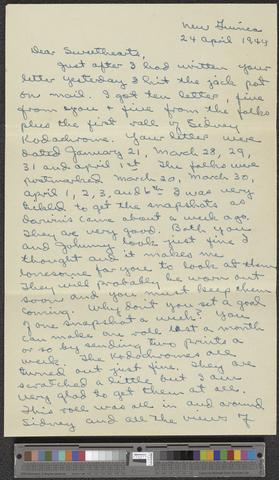 New Guinea
24 April 1944
Dear Sweethearts,
Just after I had written your
letter yesterday I hit the jack pot
on mail. I got ten letter, five
from you & five from the folks
plus the first roll of Sidney
Kodachrome. Your letter were
dated January 21, March 28, 29,
31 and April 1st. The folks were
postmarked March 20, March 30,
April 1, 2, 3, and 6th. I was very
tickled to get the snapshots as
Darwin's came about a week ago.
They are very good. Both you
and Johnny look just fine I
thought and it makes me
lonesome for you to look at them
They will probably be worn out
soon and you must keep them
coming. Why don't you set a goal
of one snapshot a week? You
can make one roll last a month
or so by sending two prints a
week. The Kodachromes all
turned out just fine. They are
scratched a little but I am
very glad to get them at all.
This roll was all in and around
Sidney and all the views of